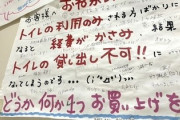 お客様へ
トイレの利用のみ される方ばかりに
なると 経費が かさみ 結果
トイレの 貸し出し 不可!! に
なってしまうのです…
どうか 何か1つ お買い上げを